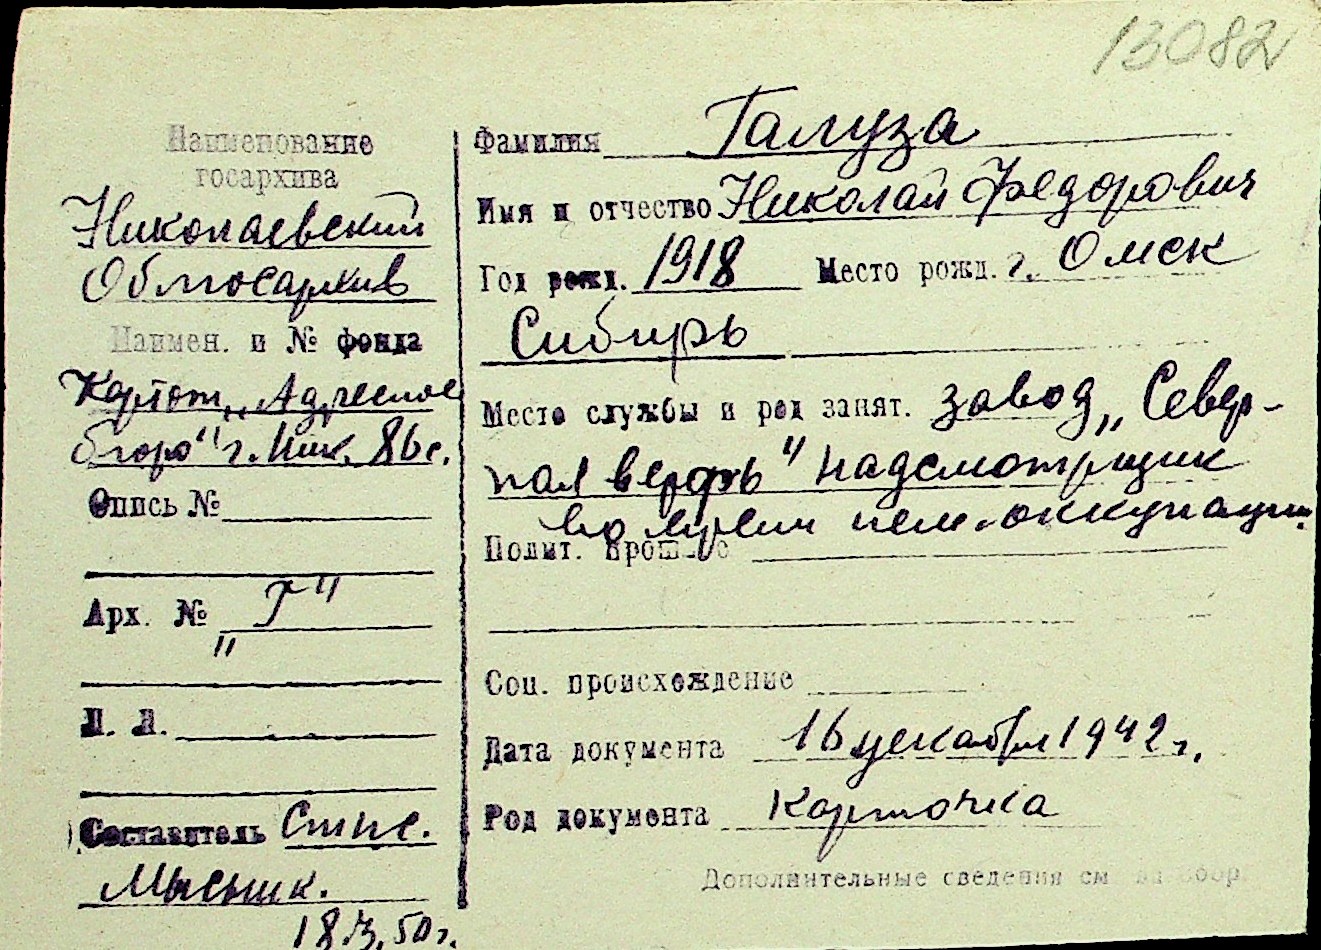 13082
Наименование
госархива
Николаевский
Облгосархив
Наимен. и № фонда
Картот. „Адресное
бюро" г. Ник. 86с.
Опись №
Арх. № „Г"
Л. Л.
Составитель
Мысник.
18.3.50г.
Фамилия Галуза
Имя и отчество Николай Федорович
Год рожд. 1918 Место рожд. г. Омск
Сибирь
Место службы и род занят. завод „Север-
ная верфь" надсмотрщик
во время нем. оккупации.
Полит. прошлое
Соц. происхождение
Дата документа 16 декабря 1942 г.
Род документа Карточка
Дополнительные сведения см на обор.